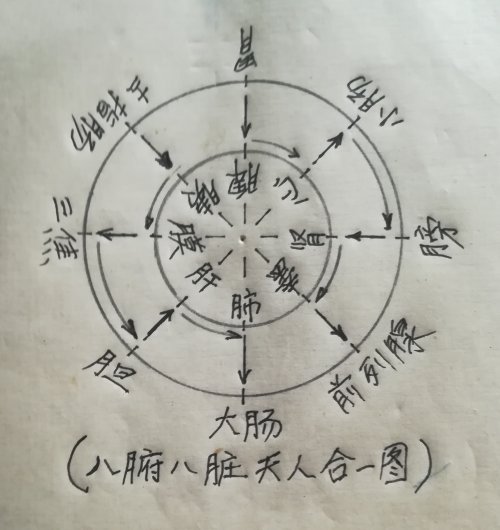 胃
小肠
膀
前列腺
大肠
胆
三焦
十二指肠
脾
心
肾
睾
肺
肝
膜
胰
(八腑八脏天人合一图)